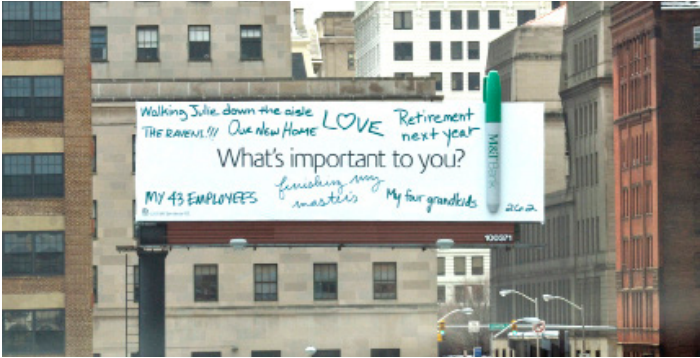 Walking Julie down the aisle
THE RAVENS!!!
Our New Home
LOVE
Retirement
next year
What's important to you?
MY 43 EMPLOYEES
finishing my
masters
My four grandkids
26.2
M&T Bank
100371